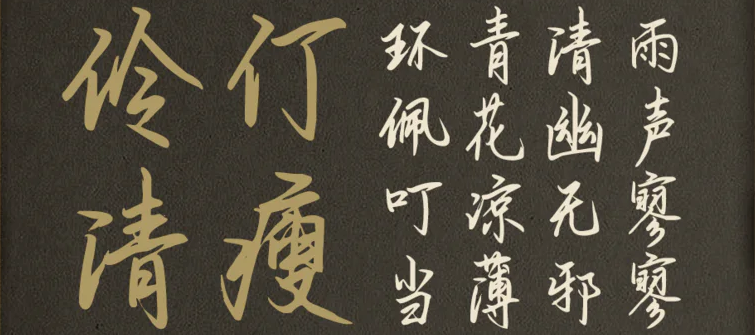 雨声寥寥
清幽无邪
青花凉薄
环佩叮当
仃瘦
伶清